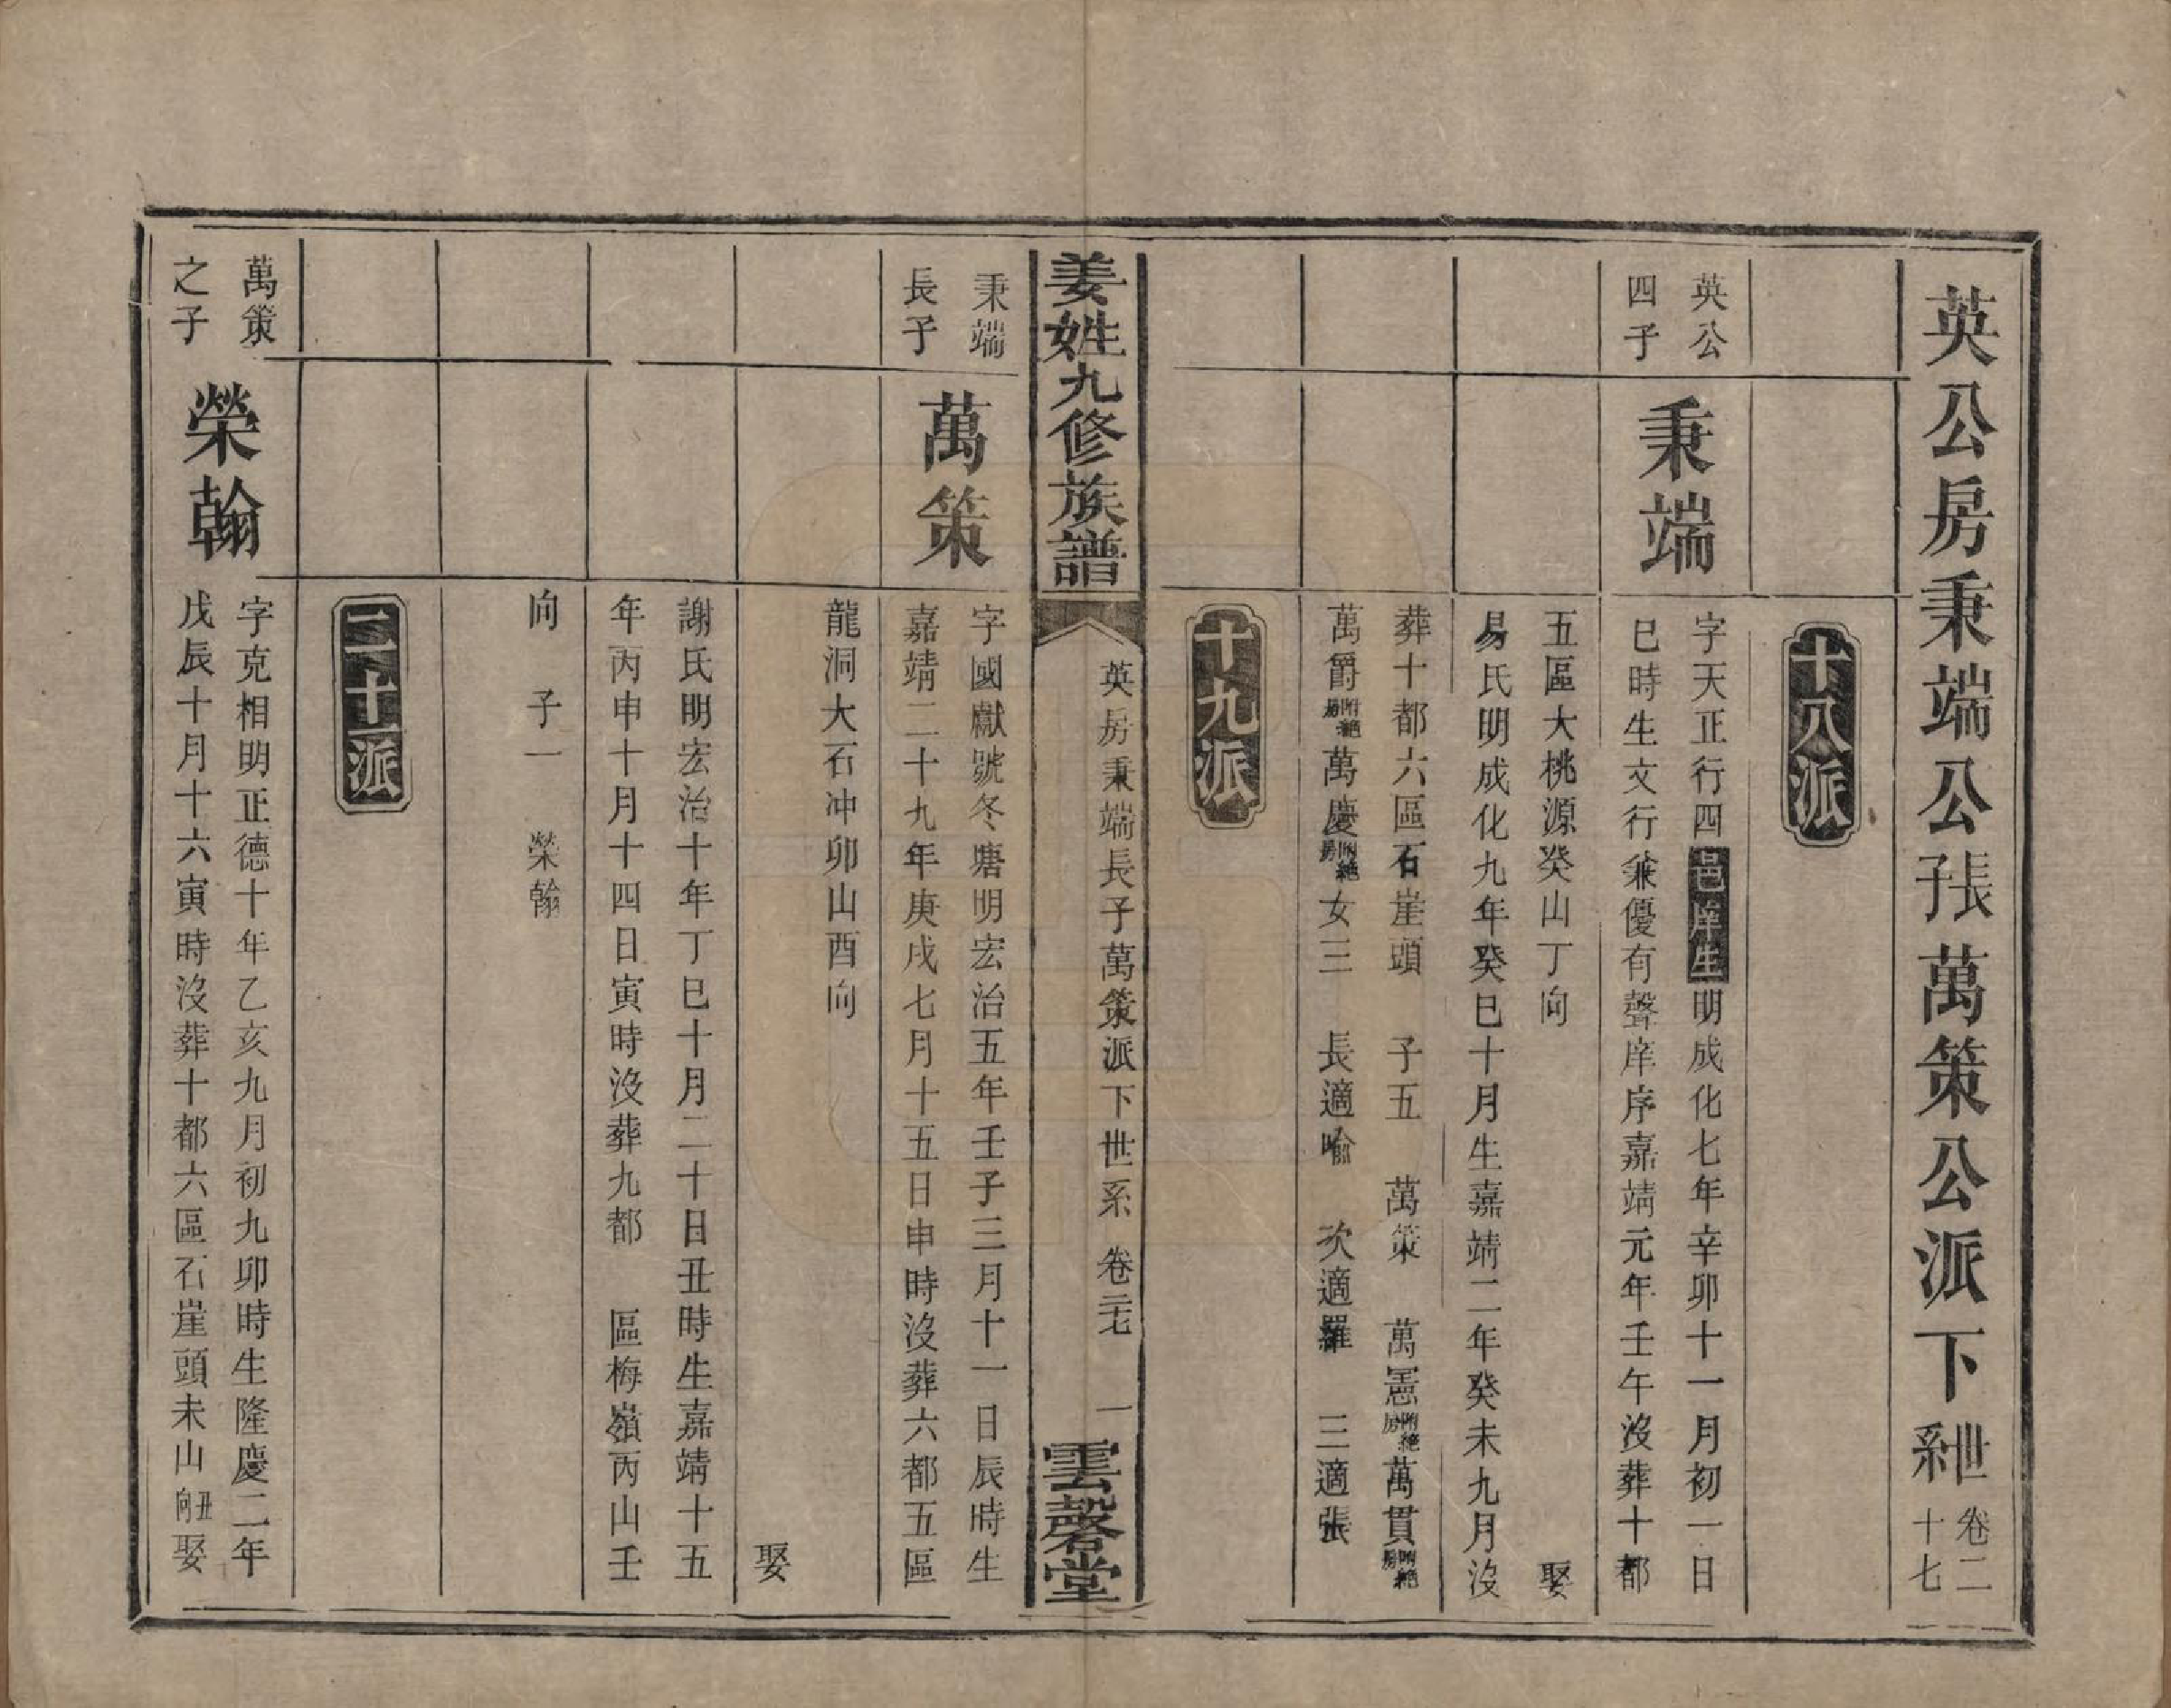 英公房秉端公長子萬策公派下世系卷二十七
十八派
英公四子
秉端
字天正行四邑庠生明成化七年辛卯十一月初一日
巳時生文行兼優有聲庠序嘉靖元年壬午沒葬十都
五區大桃源癸山丁向　娶
易氏明成化九年癸巳十月生嘉靖二年癸未九月沒
葬十都六區石崖頭　子五　萬策　萬憲附絕房萬貫附絕房
萬爵附絕房萬慶附絕房女三　長適喻　次適羅　三適張
十九派
姜姓九修族譜
英房秉端長子萬策派下世系　卷二十七　一
雲馨堂
秉端長子
萬策
字國獻號冬塘明宏治五年壬子三月十一日辰時生
嘉靖二十九年庚戌七月十五日申時沒葬六都五區
龍洞大石冲卯山酉向
娶
謝氏明宏治十年丁巳十月二十日丑時生嘉靖十五
年丙申十月十四日寅時沒葬九都　區梅嶺丙山壬
向　子一　榮翰
二十派
萬策之子
榮翰
字克相明正德十年乙亥九月初九卯時生隆慶二年
戊辰十月十六寅時沒葬十都六區石崖頭未山丑向娶